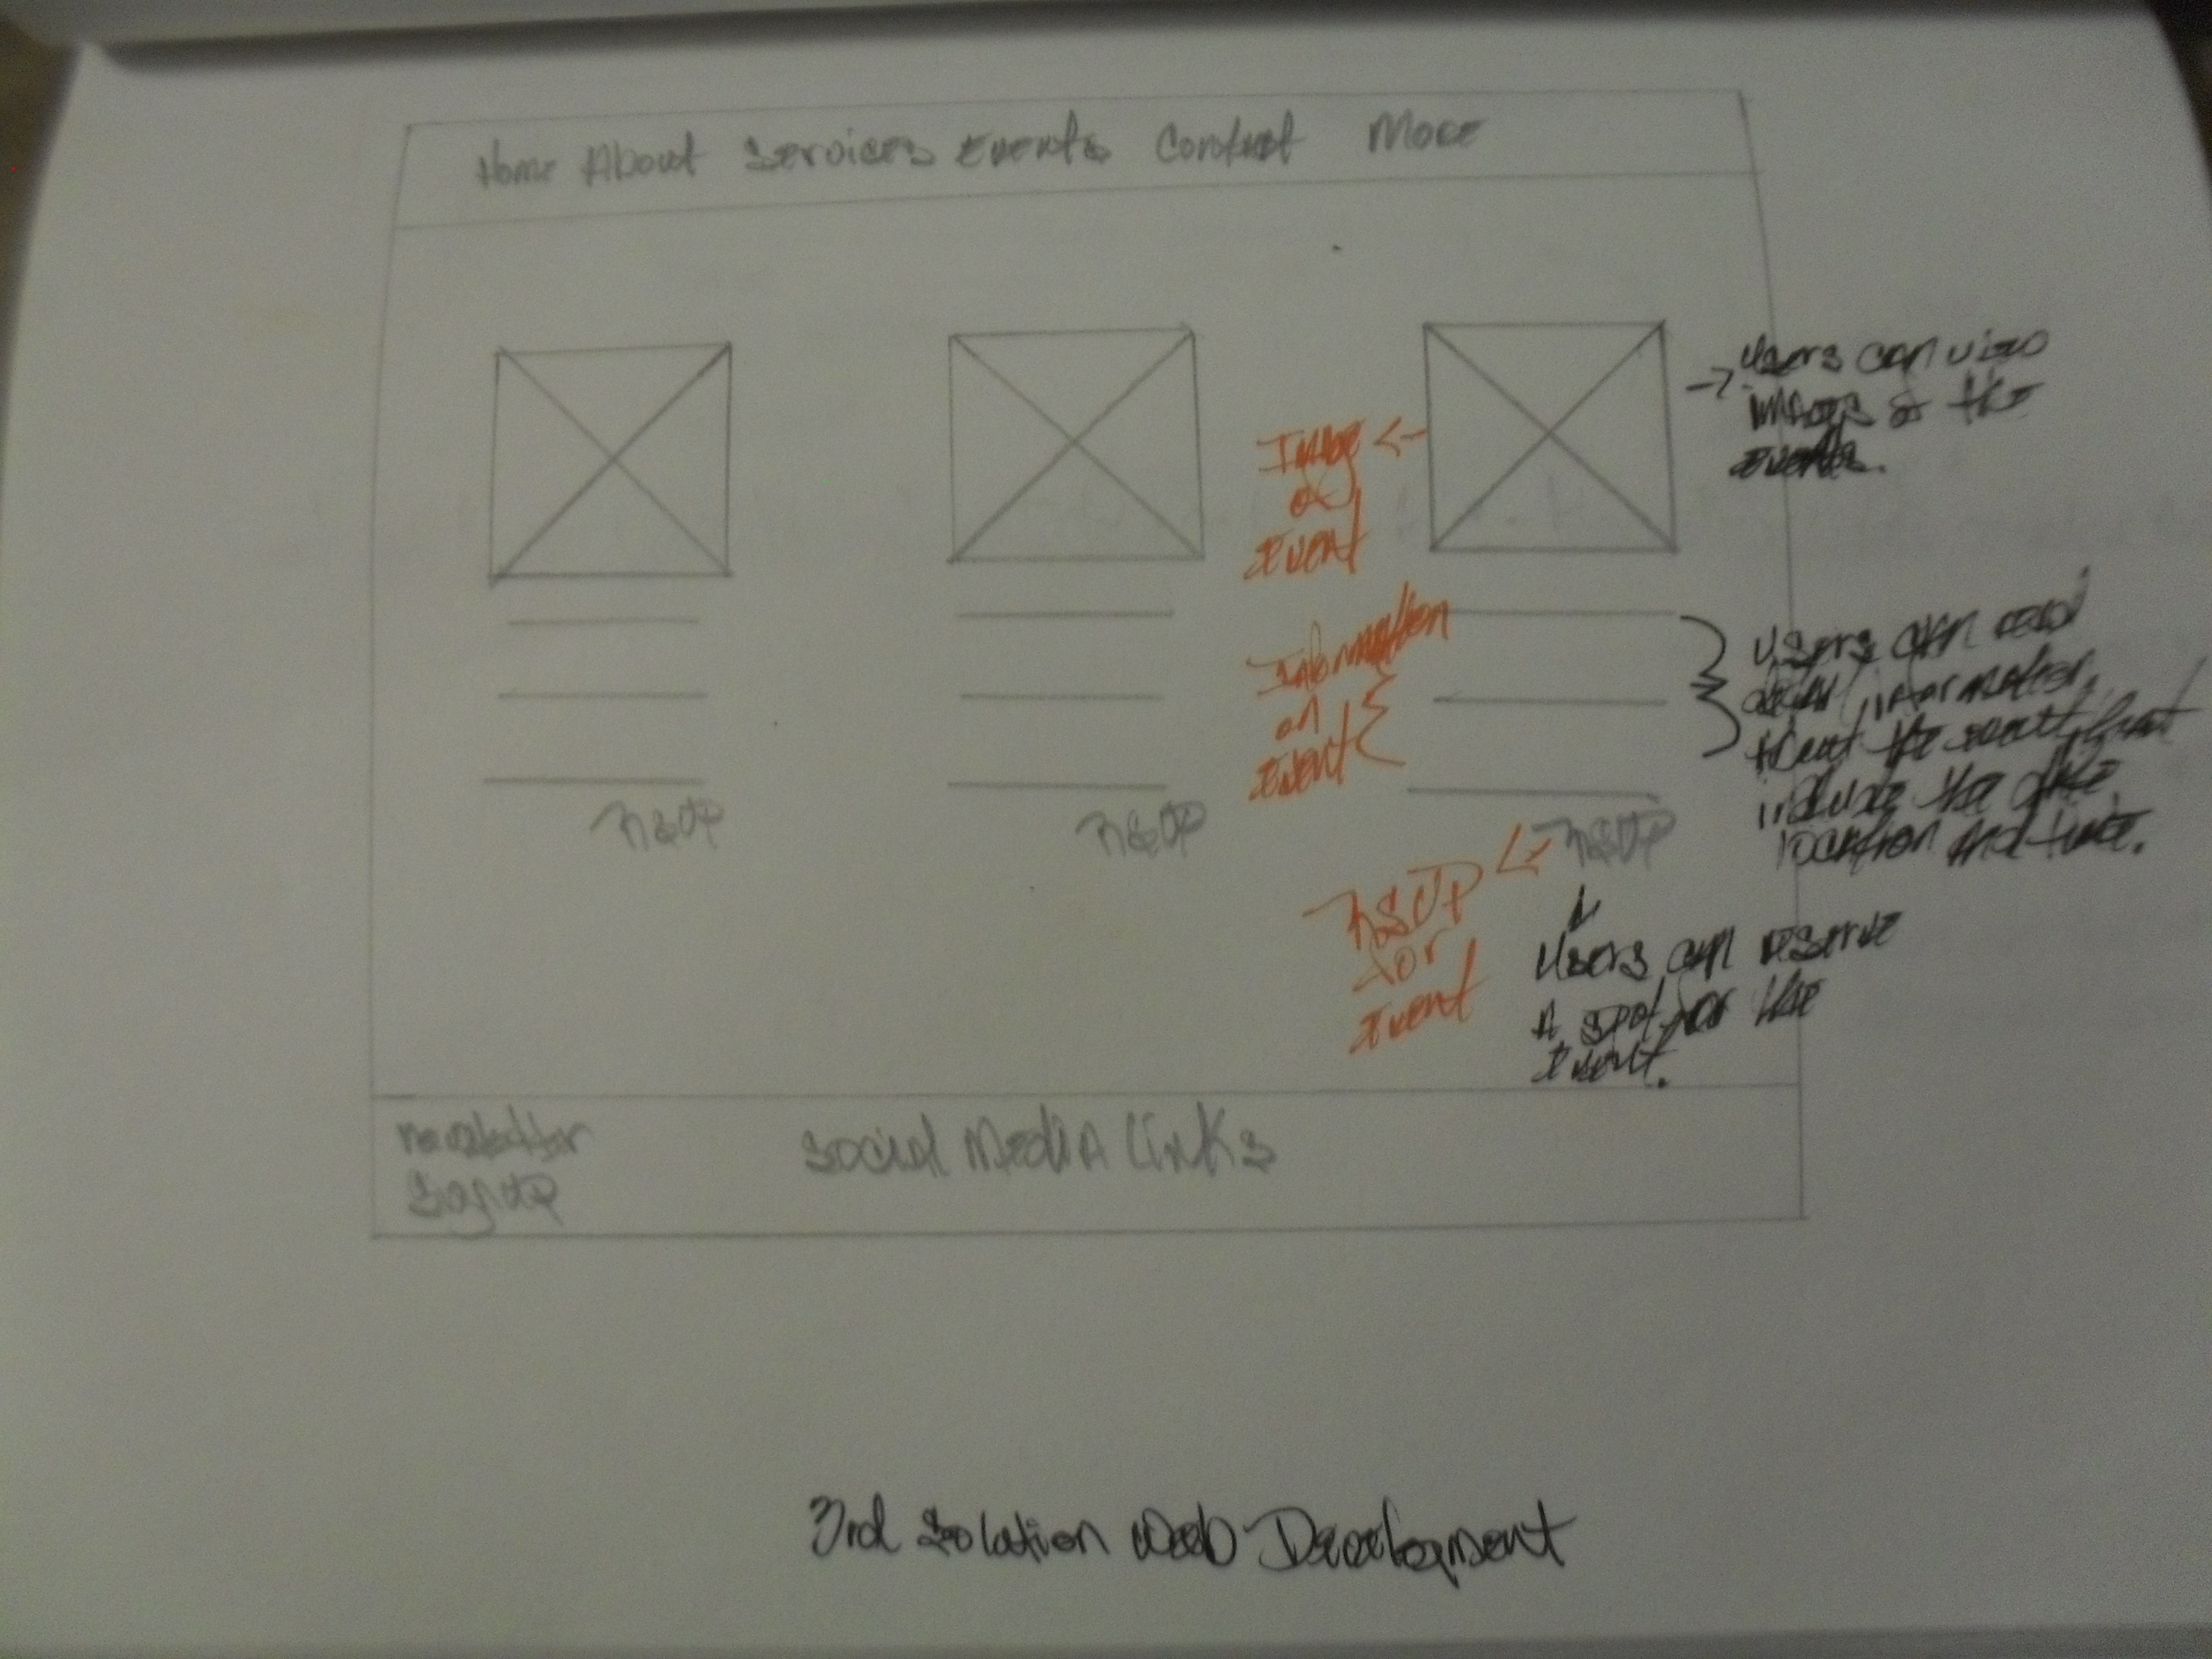 Home About Services Events Contact More
Users can view
images of the
events.
Image
of
Event
Information
on
Event
Users can read
information
about the event
include the
location and time.
RSVP
RSVP
RSVP
RSVP
for
Event
Users can reserve
A spot for the
Event.
newsletter
Sign up
Social Media Links
3rd Solution Web Development